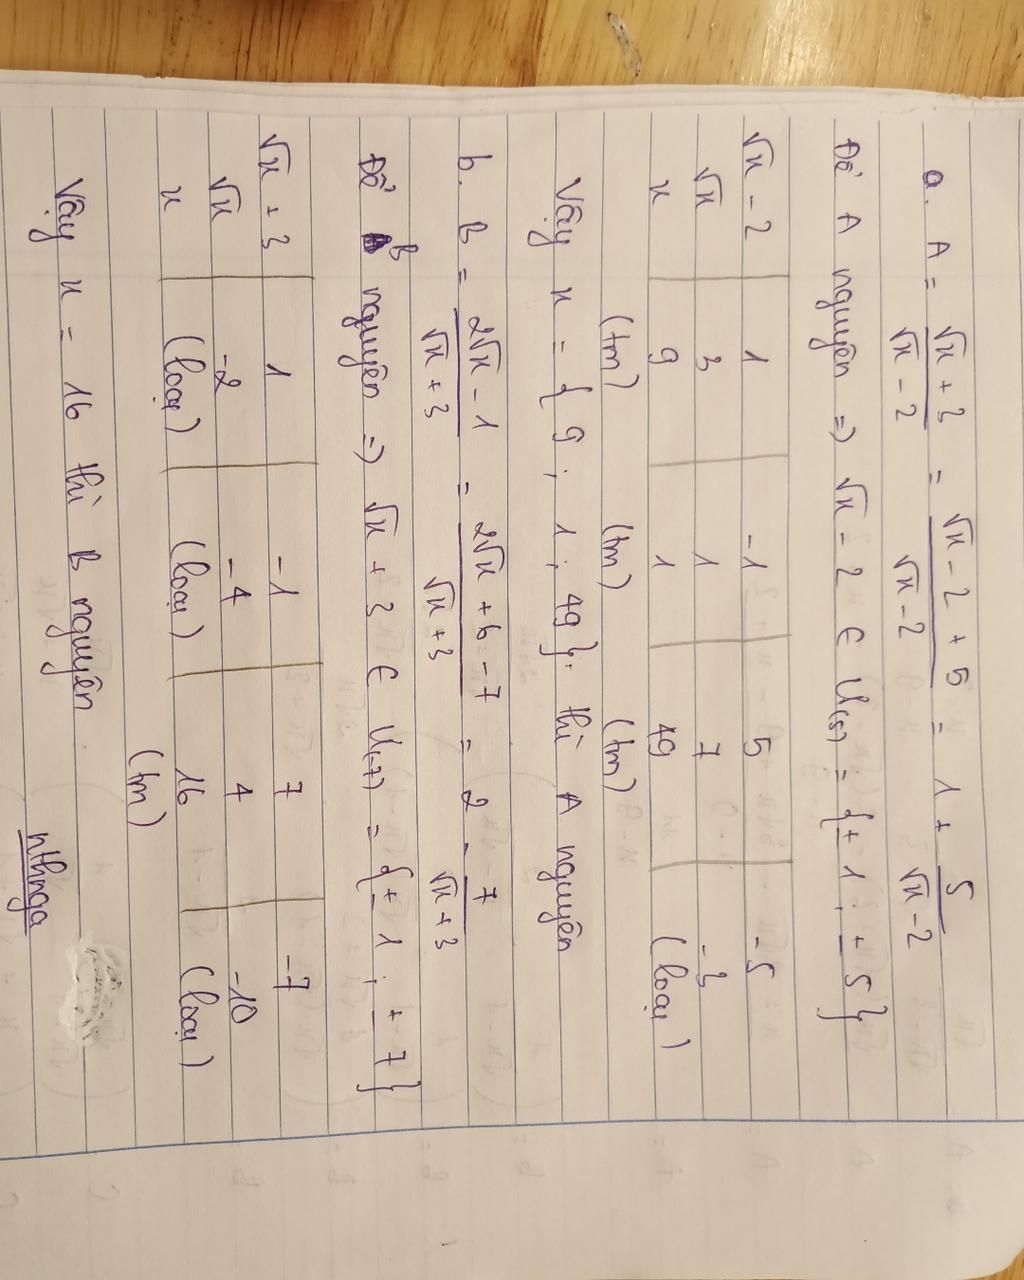 a. A = √x + 3 / √x - 2 = √x - 2 + 5 / √x - 2 = 1 + 5 / √x - 2
Để A nguyên => √x - 2 ∈ Ư(5) = {± 1; ± 5}
√x - 2 | 1 | -1 | 5 | -5
√x | 3 | 1 | 7 | -3
x | 9 | 1 | 49 | (loại)
(tm) (tm) (tm)
Vậy x = {9; 1; 49} thì A nguyên
b. B = 2√x - 1 / √x + 3 = 2√x + 6 - 7 / √x + 3 = 2 - 7 / √x + 3
Để B nguyên => √x + 3 ∈ Ư(-7) = {± 1; ± 7}
√x + 3 | 1 | -1 | 7 | -7
√x | -2 | -4 | 4 | -10
x | (loại) | (loại) | 16 | (loại)
(tm)
Vậy x = 16 thì B nguyên
nthnga